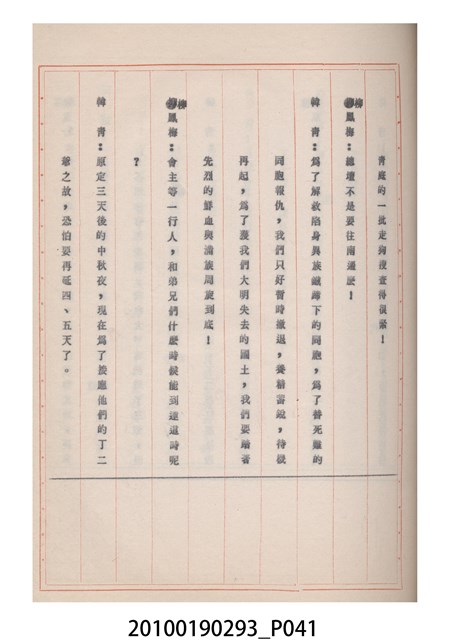 青庭的一批走狗搜查得很緊！
柳鳳梅：總壇不是要往南遷麼！
韓　青：為了解救陷身異族鐵蹄下的同胞，為了替死難的
同胞報仇，我們只好暫時撤退，養精蓄銳，待機
再起，為了復我們大明失去的國土，我們要踏著
先烈的鮮血與滿族周旋到底！
柳鳳梅：會主等一行人，和弟兄們什麼時候能到達這時呢
？
韓　青：原定三天後的中秋夜，現在為了接應他們的丁二
爺之故，恐怕要再延四、五天了。
20100190293_P041